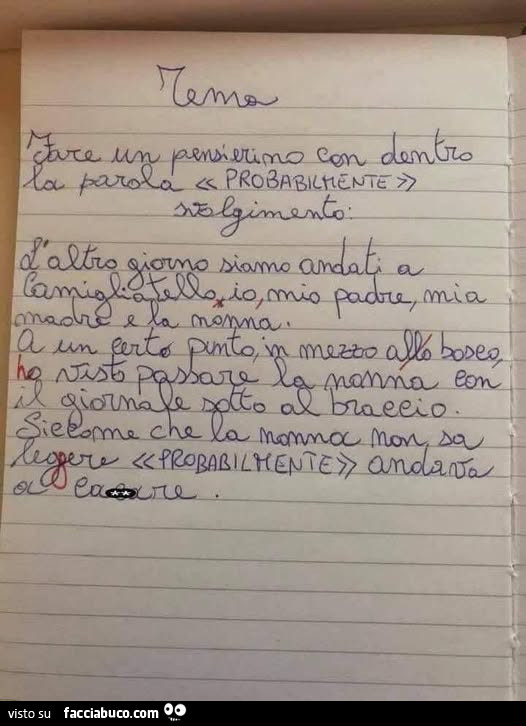 Tema
Fare un pensierino con dentro
la parola « PROBABILMENTE »
svolgimento:
L'altro giorno siamo andati a
Camigliatello, io, mio padre, mia
madre e la nonna.
A un certo punto, in mezzo allo bosco,
ho visto passare la nonna con
il giornale sotto al braccio.
Siccome che la nonna non sa
leggere «PROBABILMENTE» andava
a ca**are.
visto su facciabuco.com